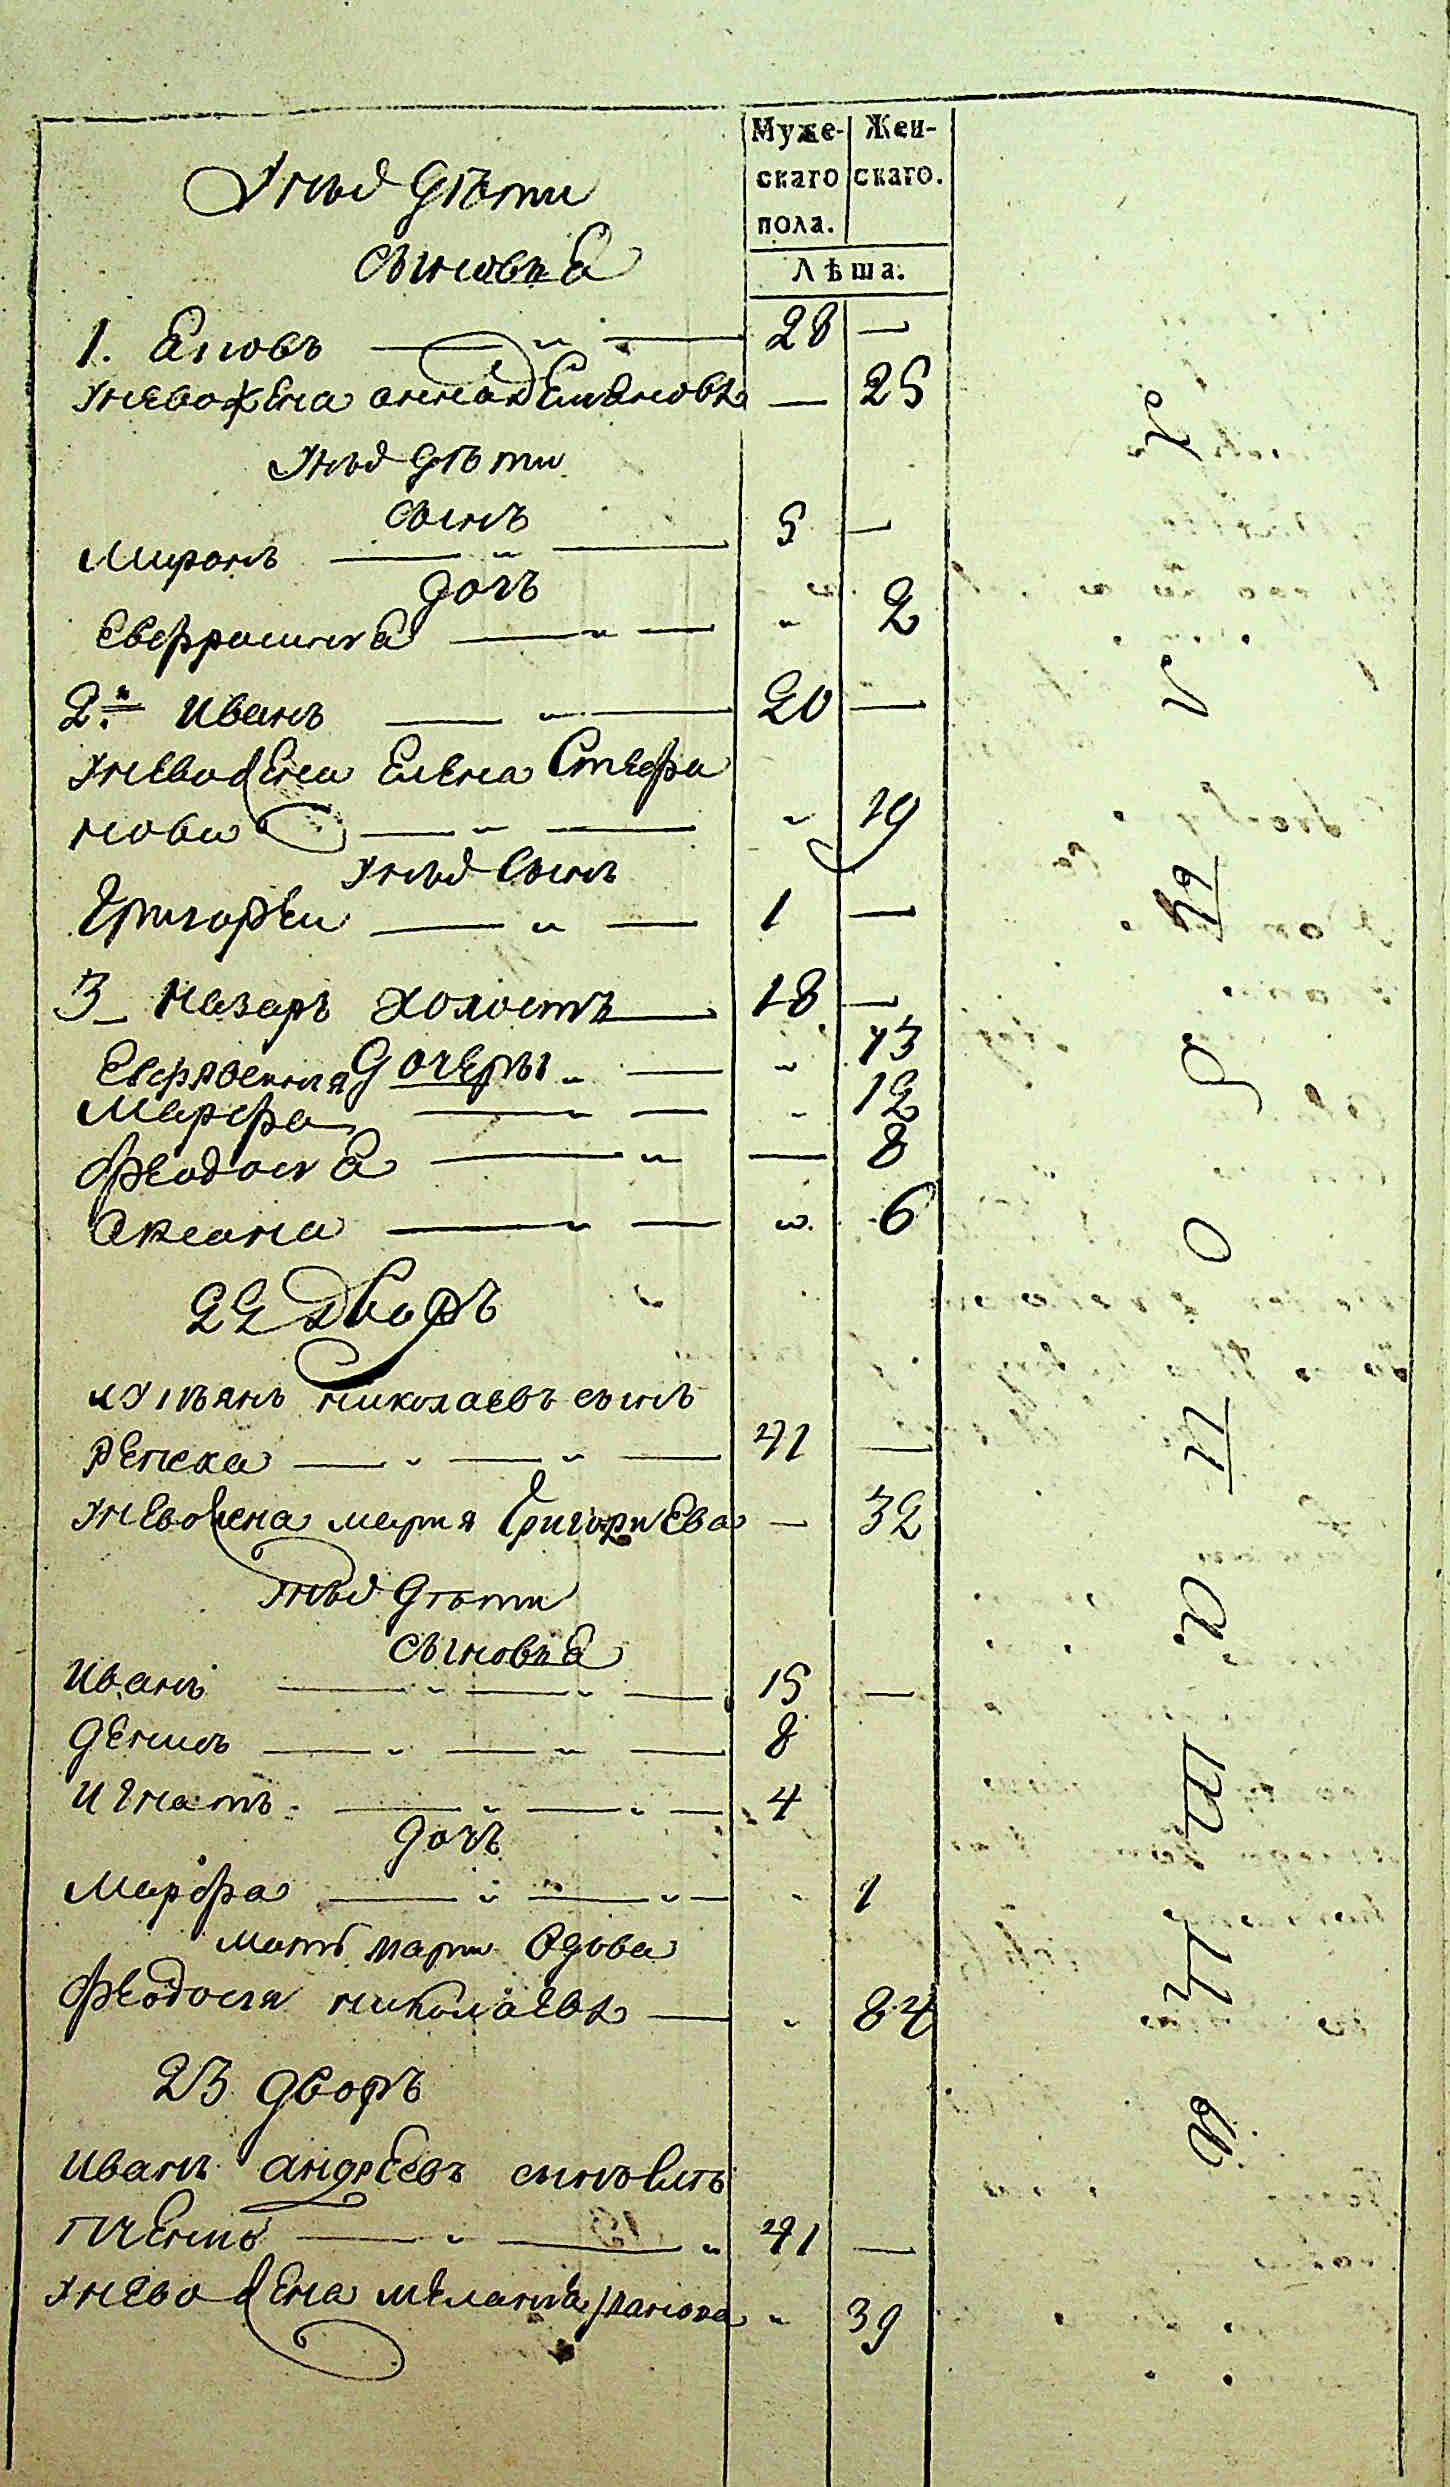 Муже-скаго пола.
Жен-скаго.
Лѣта.
У нихъ дѣти
сыновья
1. Яковъ — „ — 28 —
У него жена анна демьянова — 25
У нихъ дѣти
сынъ
Миронъ — „ — 5 —
дочь
Евфросинья — „ — „ 2
2й Иванъ — „ — 20 —
У него жена Елена Стефа
нова — „ — „ 19
У нихъ Сынъ
Григорѣи — „ — 1 —
3 Назаръ холостъ — 18 —
дочеры
Евфросиния „ — „ 13
Марфа — „ — „ 12
Феодосья — „ — 8
Аксана — „ — „ 6
22 дворъ
лукьянъ николаевъ сынъ
репека — „ — „ — 41 —
У него жена мария Григориева — 32
У нихъ дѣти
сыновья
Иванъ — „ — „ — 15 —
денисъ — „ — „ — 8
игнатъ — „ — „ — 4
дочь
Марфа — „ — „ — „ 1
мать марии вдова
Феодосия николаева — „ 84
23 дворъ
Иванъ андреевъ сынъ
— „ — „ 41 —
У него жена мелания иванова „ 39